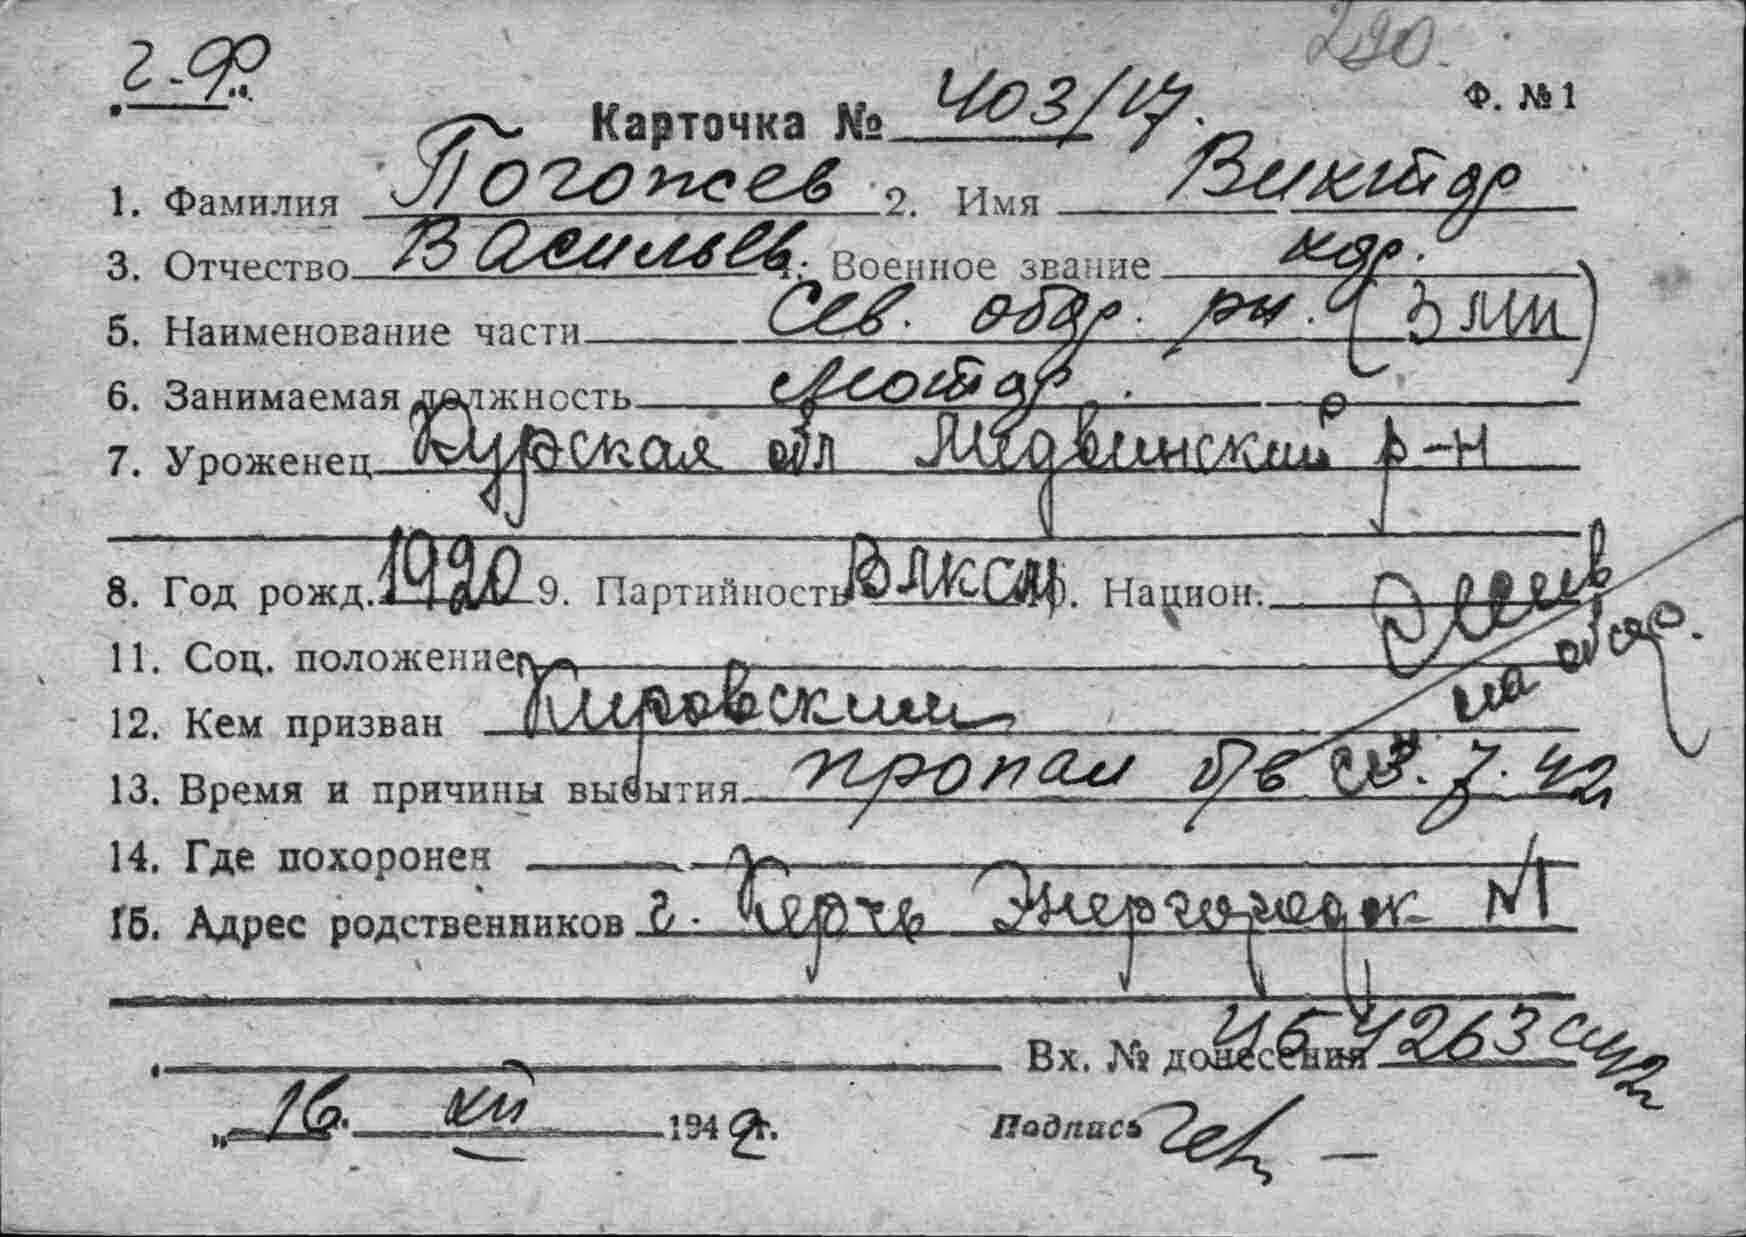 290.
г-Ф
Ф. № 1
Карточка № 403/17.
1. Фамилия Погожев 2. Имя Виктор
3. Отчество Васильев. 4. Военное звание кр.
5. Наименование части Сев. обор. рн. (3 мп)
6. Занимаемая должность мотор.
7. Уроженец Курская обл Медвинский р-н
8. Год рожд. 1920 9. Партийность ВЛКСМ 10. Национ.
11. Соц. положение
на обор.
12. Кем призван Кировским
13. Время и причины выбытия пропал б/в 3.7.42
14. Где похоронен
15. Адрес родственников г. Керчь Энергогородок №1
Вх. № донесения 4263
„ 16. XII 1942 г. Подпись